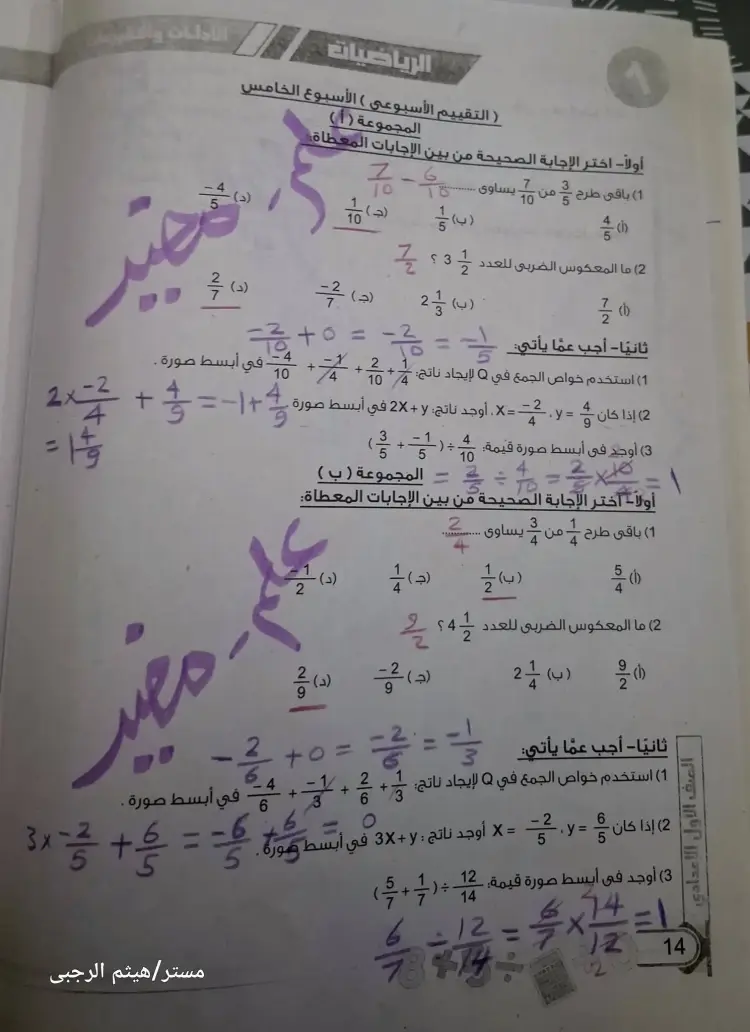 الرياضيات
الأداءات والتقييمات
1
( التقييم الأسبوعى ) الأسبوع الخامس
المجموعة ( أ )
أولاً- اختر الإجابة الصحيحة من بين الإجابات المعطاة:
1) باقى طرح 3/5 من 7/10 يساوى ............ 7/10 - 6/10
(أ) 4/5 (ب) 1/5 (جـ) 1/10 (د) -4/5
2) ما المعكوس الضربى للعدد 3 1/2 ؟ 7/2
(أ) 7/2 (ب) 2 1/3 (جـ) -2/7 (د) 2/7
ثانيًا- أجب عمًا يأتي:
-2/10 + 0 = -2/10 = -1/5
1) استخدم خواص الجمع في Q لإيجاد ناتج: 1/4 + 2/10 + -1/4 + -4/10 في أبسط صورة .
2) إذا كان X = -2/4 ، y = 4/9 ، أوجد ناتج: 2X + y في أبسط صورة
2 × -2/4 + 4/9 = -1 + 4/9
= 1 4/9
3) أوجد في أبسط صورة قيمة: (3/5 + -1/5) ÷ 4/10
= 2/5 ÷ 4/10 = 2/5 × 10/4 = 1
المجموعة ( ب )
أولاً- اختر الإجابة الصحيحة من بين الإجابات المعطاة:
1) باقى طرح 1/4 من 3/4 يساوى ............ 2/4
(أ) 5/4 (ب) 1/2 (جـ) 1/4 (د) -1/2
2) ما المعكوس الضربى للعدد 4 1/2 ؟ 9/2
(أ) 9/2 (ب) 2 1/4 (جـ) -2/9 (د) 2/9
ثانيًا- أجب عمًا يأتي:
-2/6 + 0 = -2/6 = -1/3
1) استخدم خواص الجمع في Q لإيجاد ناتج: 1/3 + 2/6 + -1/3 + -4/6 في أبسط صورة .
2) إذا كان X = -2/5 ، y = 6/5 أوجد ناتج : 3X + y في أبسط صورة .
3 × -2/5 + 6/5 = -6/5 + 6/5 = 0
3) أوجد في أبسط صورة قيمة: (5/7 + 1/7) ÷ 12/14
6/7 ÷ 12/14 = 6/7 × 14/12 = 1
الصف الأول الاعدادى
14
مستر/هيثم الرجبى